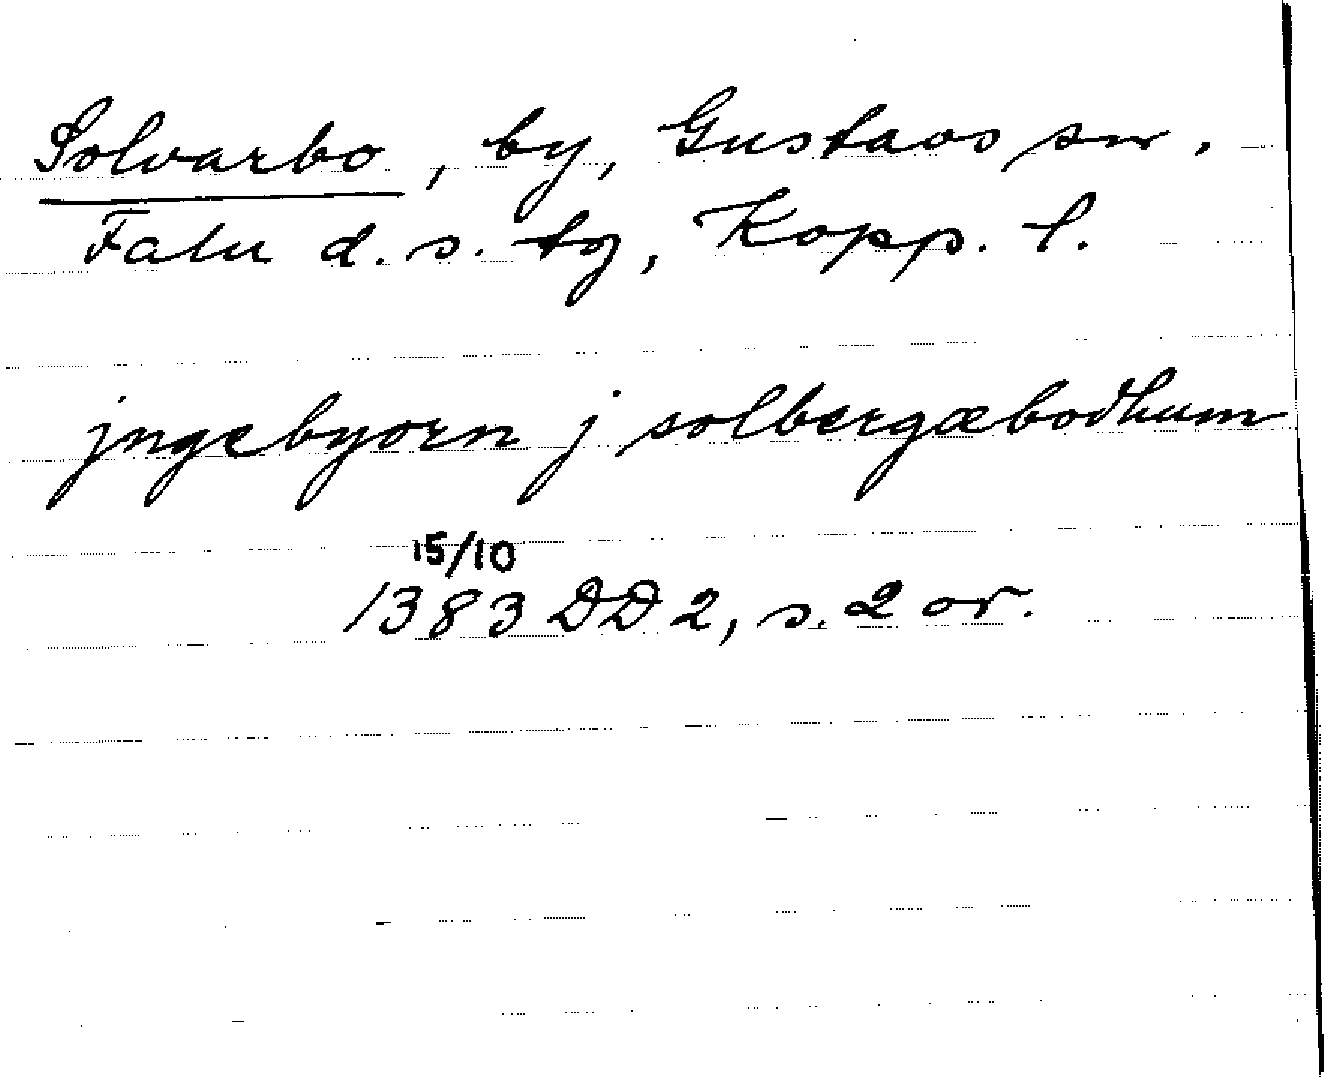 Solvarbo, by, Gustavs sn.
Falu d. s. tg, Kopp. l.
jngebyorn j solbergæbodhum
15/10
1383 DD 2, s. 2 or.